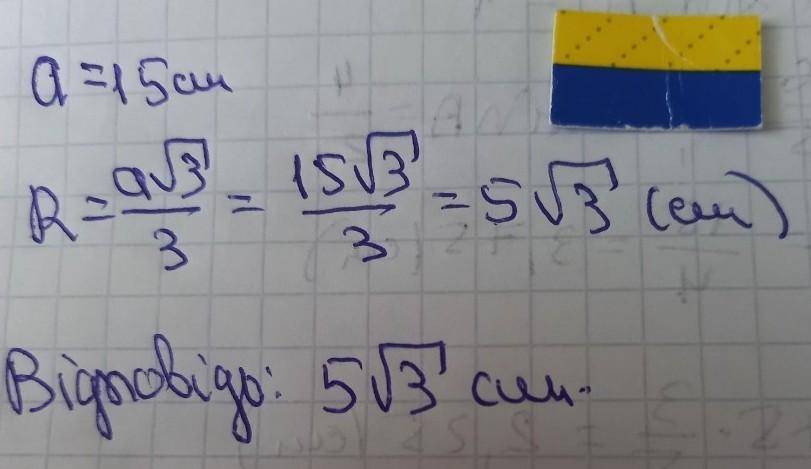 a = 15 см
R = a√3/3 = 15√3/3 = 5√3 (см)
Відповідь: 5√3 см.